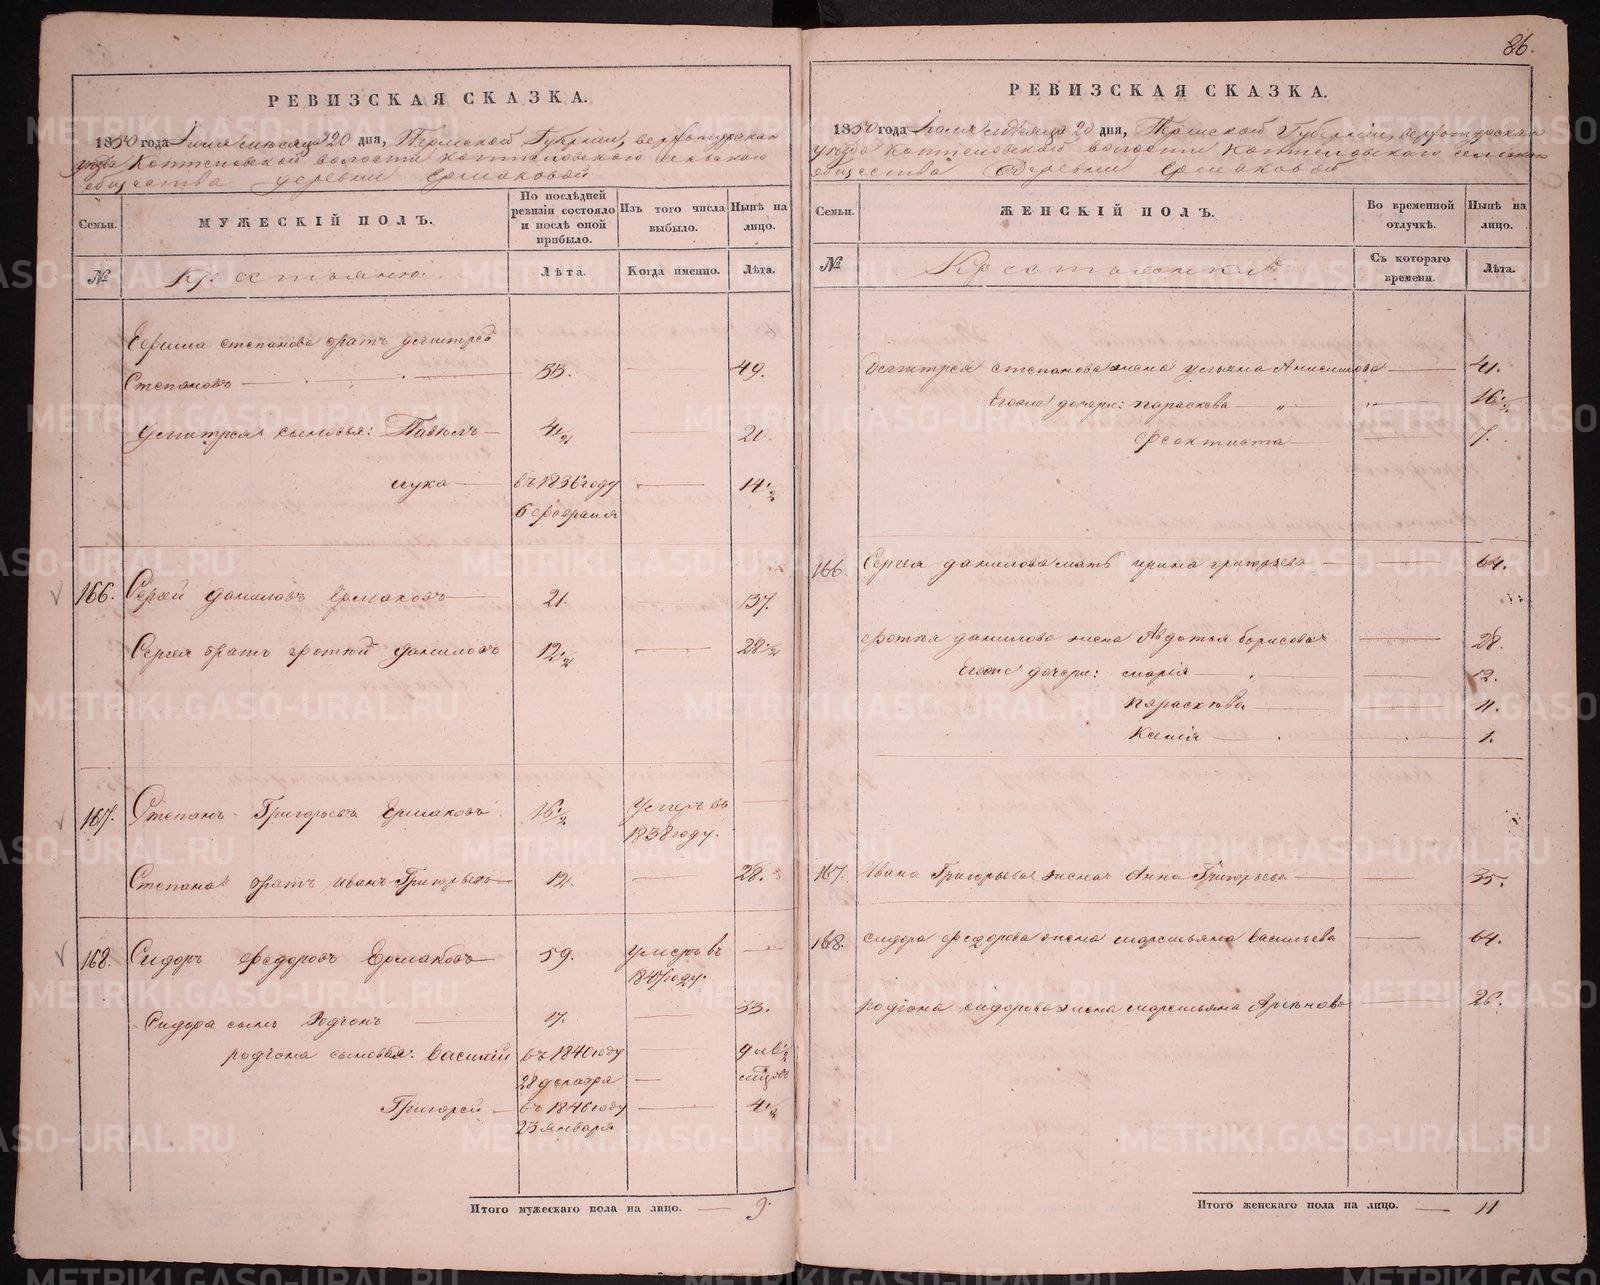 86.
РЕВИЗСКАЯ СКАЗКА.
1850 года Іюля месяца 20 дня, Пермской Губерніи, верхотурскаго
уезда Коптеловской волости Коптеловскаго сельскаго
общества деревни Ермаковой
Семьи.
МУЖЕСКІЙ ПОЛЪ.
По послѣдней ревизіи состояло и послѣ оной прибыло.
Изъ того числа выбыло.
Нынѣ на лицо.
№
Крестьяне
Лѣта.
Когда именно.
Лѣта.
степанова братъ дмитрей
Степановъ 33. 49.
дмитрея сыновья: Павелъ 4 1/2 20.
лука въ 1836 году 14 1/2
6 февраля
166. Сергей даниловъ Ермаковъ 21. 37.
Сергея братъ фотей даниловъ 12 1/2 28 1/2
167. Степанъ Григорьевъ Ермаковъ 16 1/2 Умеръ въ
1838 году.
Степана братъ иванъ Григорьевъ 12. 28.
168. Сидоръ федоровъ Ермаковъ 59. умеръ въ
1847 году.
Сидора сынъ Родіонъ 17. 33.
родіона сыновья: василий въ 1840 году 9 лѣ
28 декабря
Григорей въ 1846 году 4 1/2
23 января
Итого мужескаго пола на лицо. 9.
РЕВИЗСКАЯ СКАЗКА.
1850 года Іюля месяца 20 дня, Пермской Губерніи, верхотурскаго
уезда Коптеловской волости Коптеловскаго сельскаго
общества Деревни Ермаковой
Семьи.
ЖЕНСКІЙ ПОЛЪ.
Во временной отлучкѣ.
Нынѣ на лицо.
№
Крестьянки
Съ котораго времени.
Лѣта.
Дмитрея степанова жена ульяна Анисимова 41.
Егоже дочери: параскева " " 16 1/2
феоктиста 7.
166. Сергея данилова мать ирина григорьева 64.
фотея данилова жена Авдотья борисова 28.
Егоже дочери: марія 12.
параскѣва 11.
Ксенія 1.
167. Ивана Григорьева жена Анна Григорьева 35.
168. сидора федорова жена маремьяна васильева 64.
родіона сидорова жена маремьяна 26.
Итого женскаго пола на лицо. 11
METRIKI.GASO-URAL.RU